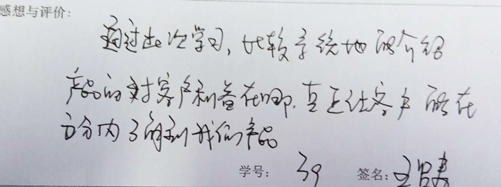 感想与评价:
通过此次学习,比较系统地的介绍
产品的对客户利益在哪,真正让客户能在
分内了解到我们产品
学号: 39 签名: 王